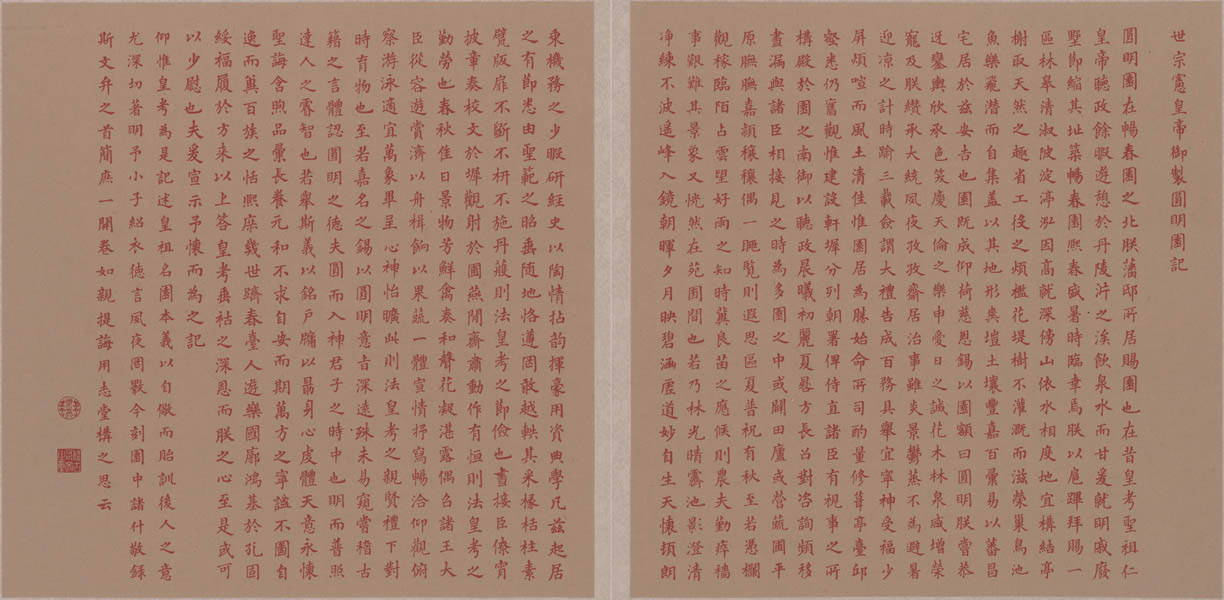 世宗憲皇帝御製圓明園記
圓明園在暢春園之北朕藩邸所居賜園也在昔皇考聖祖仁
皇帝聽政餘暇遊憩於丹陵沜之涘飲泉水而甘爰就明戚廢
墅節縮其址築暢春園熙春盛暑時臨幸焉朕以扈蹕拜賜一
區林皋清淑陂淀渟泓因高就深傍山依水相度地宜構結亭
榭取天然之趣省工役之煩檻花堤樹不灌溉而滋榮巢鳥池
魚樂飛潛而自集蓋以其地形爽塏土壤豐嘉百彙易以蕃昌
宅居於茲安吉也園既成仰荷慈恩錫以園額曰圓明朕嘗恭
迓鑾輿欣承色笑慶天倫之樂申愛日之誠花木林泉咸增榮
寵及朕纘承大統夙夜孜孜齋居治事雖炎景鬱蒸不為避暑
迎涼之計時踰三載僉謂大禮告成百務具舉宜寧神受福少
屏煩喧而風土清佳惟園居為勝始命所司酌量修葺亭臺邱
壑悉仍舊觀惟建設軒墀分列朝署俾侍直諸臣有視事之所
構殿於園之南御以聽政晨曦初麗夏晷方長召對咨詢頻移
晝漏與諸臣相接見之時為多園之中或闢田廬或營蔬圃平
原膴膴嘉穎穰穰偶一眺覽則遐思區夏普祝有秋至若憑欄
觀稼臨陌占雲望好雨之知時冀良苗之應候則農夫勤瘁穡
事艱難其景象又恍然在苑囿間也若乃林光晴霽池影澄清
净練不波遙峰入鏡朝暉夕月映碧涵虛道妙自生天懷頓朗
乘機務之少暇研經史以陶情拈韵揮豪用資典學凡茲起居
之有節悉由聖範之昭垂隨地恪遵罔敢越軼其采椽栝柱素
甓版扉不斲不枅不施丹雘則法皇考之節儉也晝接臣僚宵
披章奏校文於墀觀射於圃燕閒齋肅動作有恒則法皇考之
勤勞也春秋佳日景物芳鮮禽奏和聲花凝湛露偶召諸王大
臣從容遊賞濟以舟楫餉以果蔬一體宣情抒寫暢洽仰觀俯
察游泳適宜萬象畢呈心神怡曠此則法皇考之親賢禮下對
時育物也至若嘉名之錫以圓明意旨深遠殊未易窺嘗稽古
籍之言體認圓明之德夫圓而入神君子之時中也明而普照
達人之睿智也若舉斯義以銘戶牖以勗身心虔體天意永懷
聖誨含煦品彙長養元和不求自安而期萬方之寧謐不圖自
逸而冀百族之恬熙庶幾世躋春臺人遊樂國廓鴻基於孔固
綏福履於方來以上答皇考垂祜之深恩而朕之心至是或可
以少慰也夫爰宣示予懷而為之記
仰惟皇考為是記述皇祖名園本義以自儆而貽訓後人之意
尤深切著明予小子紹衣德言夙夜罔斁今刻園中諸什敬錄
斯文弁之首簡庶一開卷如親提誨用志堂構之思云